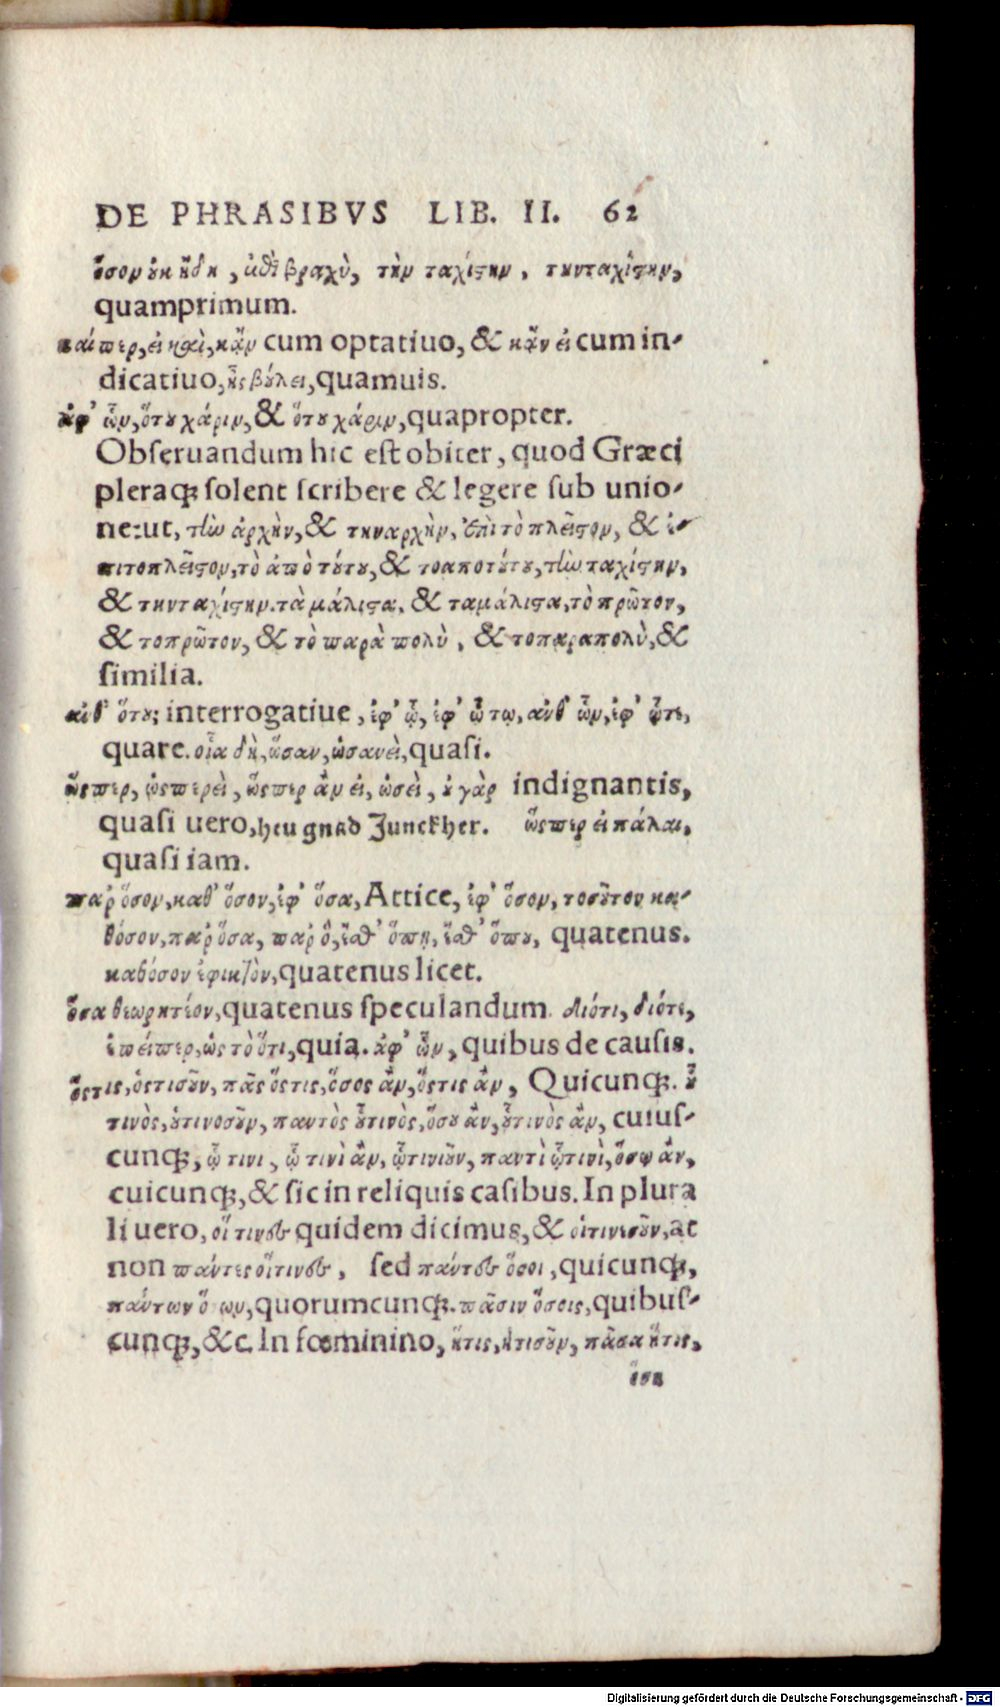 DE PHRASIBVS LIB. II. 62
ὅσον οὐκ ἤδη, κατὰ βραχὺ, τὴν ταχίστην, τηνταχίστην,
quamprimum.
καίπερ, εἰ καὶ, κᾂν cum optatiuo, & κᾂν εἰ cum in-
dicatiuo, ᾗς βούλει, quamuis.
ἀφ' ὧν, ὅτου χάριν, & ὅτου χάριν, quapropter.
Obseruandum hic est obiter, quod Græci
pleraq; solent scribere & legere sub unio-
ne: ut, τὴν ἀρχὴν, & τηναρχὴν, ἐπὶ τὸ πλεῖστον, & ἐ-
πιτοπλεῖστον, τὸ ἀπὸ τούτου, & τοαποτούτου, τὴν ταχίστην,
& τηνταχίστην. τὰ μάλιστα, & ταμάλιστα, τὸ πρῶτον,
& τοπρῶτον, & τὸ παρὰ πολὺ, & τοπαραπολὺ, &
similia.
καθ' ὅτου; interrogatiue, ἐφ' ᾧ, ἐφ' ᾧ τῳ, ἀνθ' ὧν, ἐφ' ᾧτε,
quare. οἷα δὴ, ὥσαν, ὡσανεὶ, quasi.
ὥσπερ, ὡσπερεὶ, ὥσπερ ἂν εἰ, ὡσεὶ, οὐ γὰρ indignantis,
quasi uero, heu gnad Junckher. ὥσπερ εἰ πάλαι,
quasi iam.
παρ' ὅσον, καθ' ὅσον, ἐφ' ὅσα, Attice, ἐφ' ὅσον, τοσοῦτον κα-
θόσον, παρ' ὅσα, παρ' ὃ, ἔσθ' ὅπῃ, ἔσθ' ὅπου, quatenus.
καθόσον ἐφικτὸν, quatenus licet.
ὅσα θεωρητέον, quatenus speculandum. διότι, διότι,
ἐπείπερ, ὡς τὸ ὅτι, quia. ἀφ' ὧν, quibus de causis.
ὅστις, ὁστισοῦν, πᾶς ὅστις, ὅσος ἂν, ὅστις ἂν, Quicunq;. οὗ
τινὸς, οὑτινοσοῦν, παντὸς οὗτινὸς, ὅσου ἂν, οὗτινὸς ἂν, cuius-
cunq;, ᾧ τινι, ᾧ τινὶ ἂν, ᾧτινιοῦν, παντὶ ᾧτινὶ, ὅσῳ ἂν,
cuicunq;, & sic in reliquis casibus. In plura
li uero, οἵ τινες quidem dicimus, & οἱτινεσοῦν, at
non πάντες οἵτινες, sed πάντες ὅσοι, quicunq;,
πάντων ὅ ων, quorumcunq;. πᾶσιν ὅσοις, quibus-
cunq;, &c. In fœminino, ἥτις, ἡτισοῦν, πᾶσα ἥτις,
ὅση
Digitalisierung gefördert durch die Deutsche Forschungsgemeinschaft - DFG